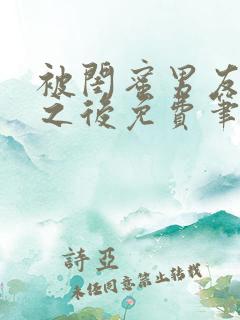 被閨蜜男友
之後免費筆
詩亞
未经同意禁止转载